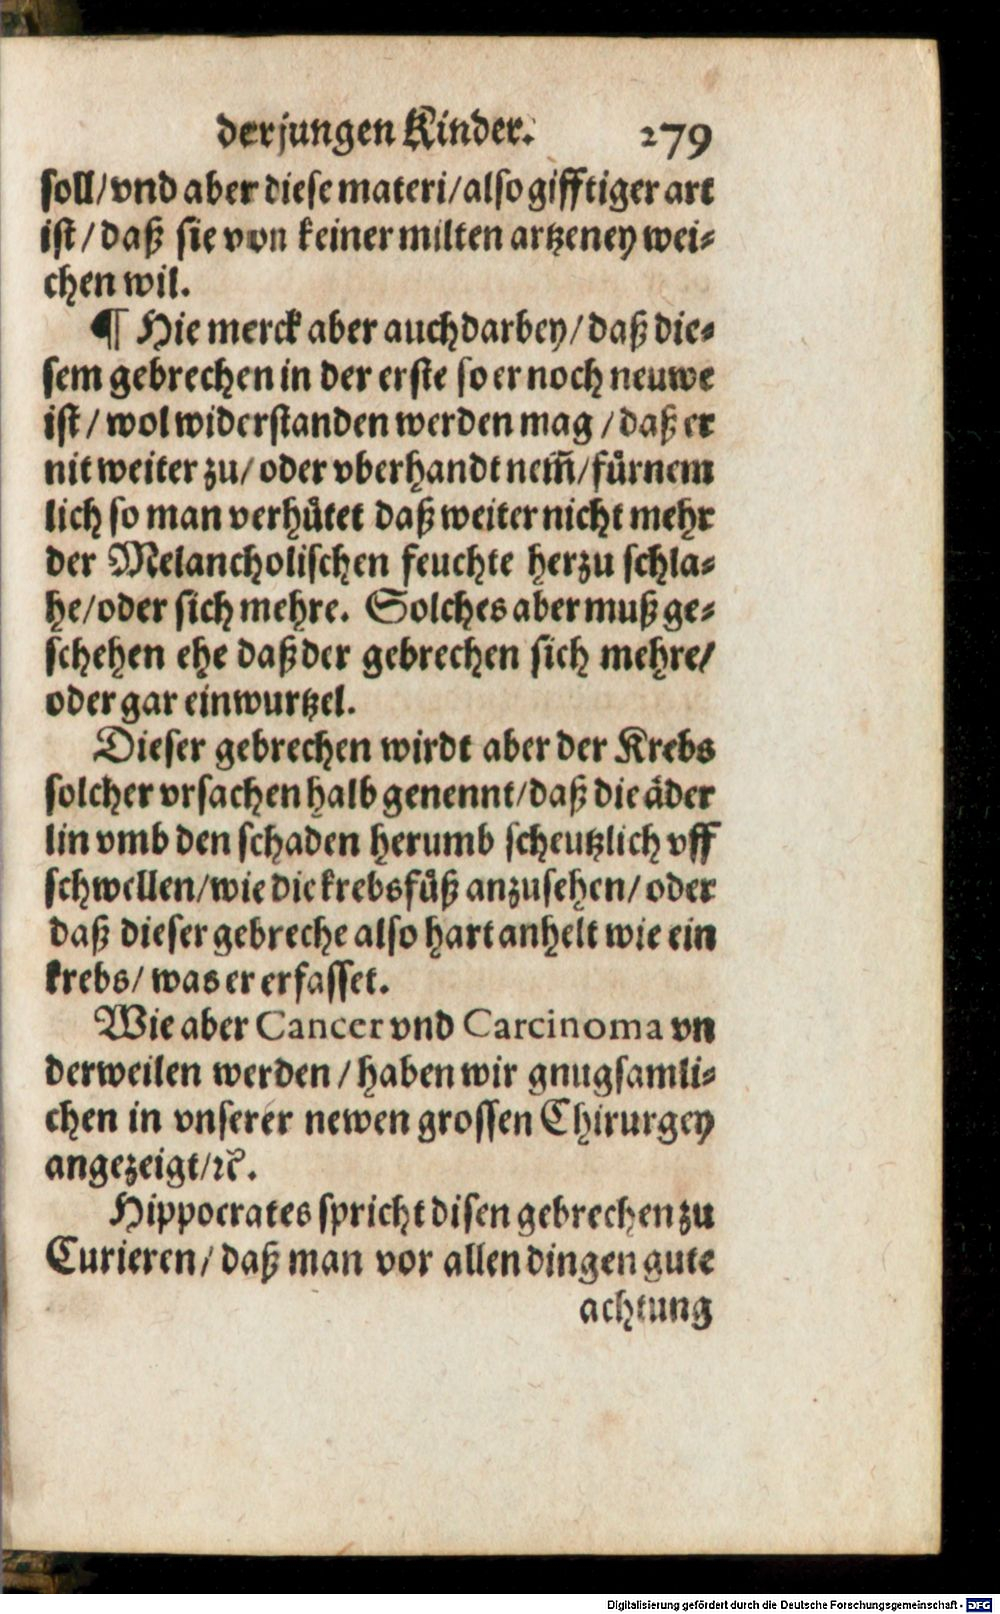 der jungen Kinder. 279
soll/ vnd aber diese materi/ also gifftiger art
ist/ daß sie von keiner milten artzeney wei⸗
chen wil.
¶ Hie merck aber auch darbey/ daß die⸗
sem gebrechen in der erste so er noch neuwe
ist/ wol widerstanden werden mag/ daß er
nit weiter zu/ oder vberhandt nem̃/ fuͤrnem
lich so man verhuͤtet daß weiter nicht mehr
der Melancholischen feuchte herzu schla⸗
he/ oder sich mehre. Solches aber muß ge⸗
schehen ehe daß der gebrechen sich mehre/
oder gar einwurtzel.
Dieser gebrechen wirdt aber der Krebs
solcher vrsachen halb genennt/ daß die aͤder
lin vmb den schaden herumb scheutzlich vff
schwellen/ wie die krebsfuͤß anzusehen/ oder
daß dieser gebreche also hart anhelt wie ein
krebs/ was er erfasset.
Wie aber Cancer vnd Carcinoma vn
derweilen werden/ haben wir gnugsamli⸗
chen in vnserer newen grossen Chirurgey
angezeigt/ ꝛc.
Hippocrates spricht disen gebrechen zu
Curieren/ daß man vor allen dingen gute
achtung
Digitalisierung gefördert durch die Deutsche Forschungsgemeinschaft - DFG